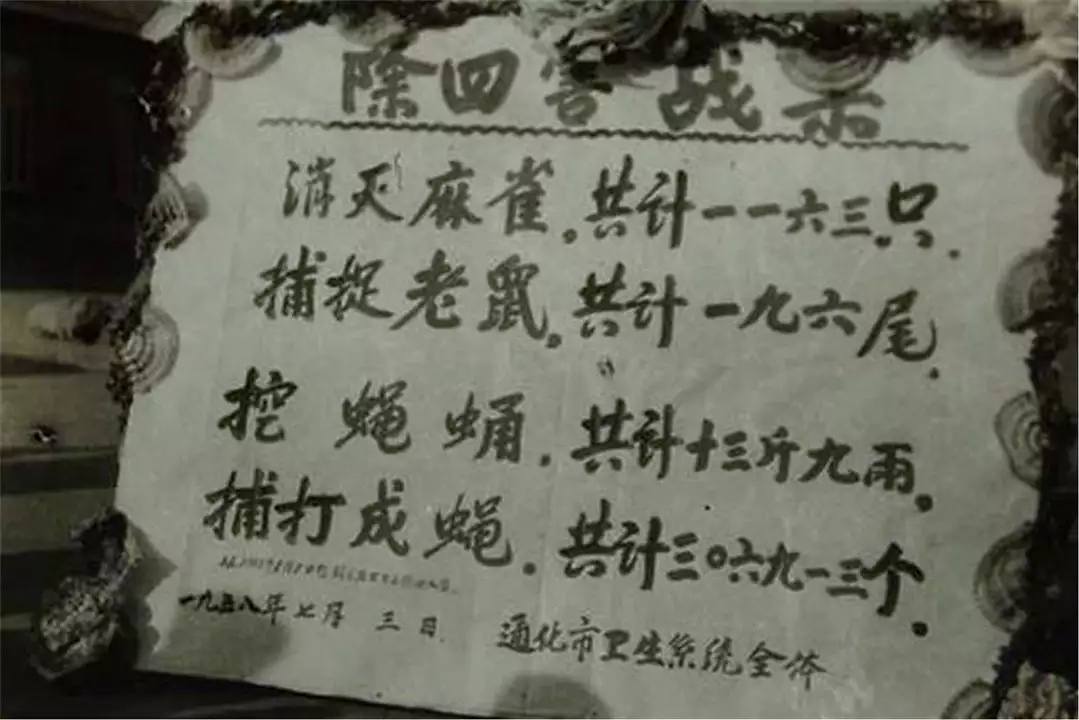 除四害战果
消灭麻雀。共计一一六三只.
捕捉老鼠。共计一九六尾.
挖蝇蛹.共计十三斤九两.
捕打成蝇.共计三〇六九一三个.
一九五八年七月三日.
通化市卫生系统全体